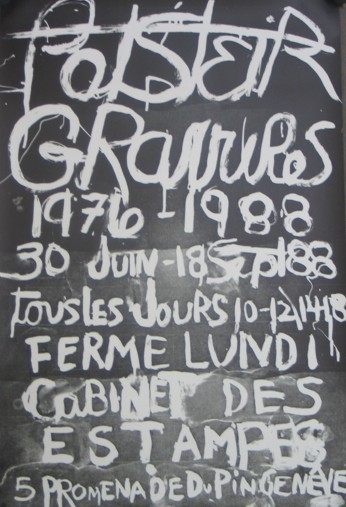 POLSTER
GRAVURES
1976-1988
30 JUIN-18 Sept 88
TOUS LES JOURS 10-12/14-18
FERME LUNDI
CABINET DES
ESTAMPES
5 PROMENADE DU PIN GENÈVE